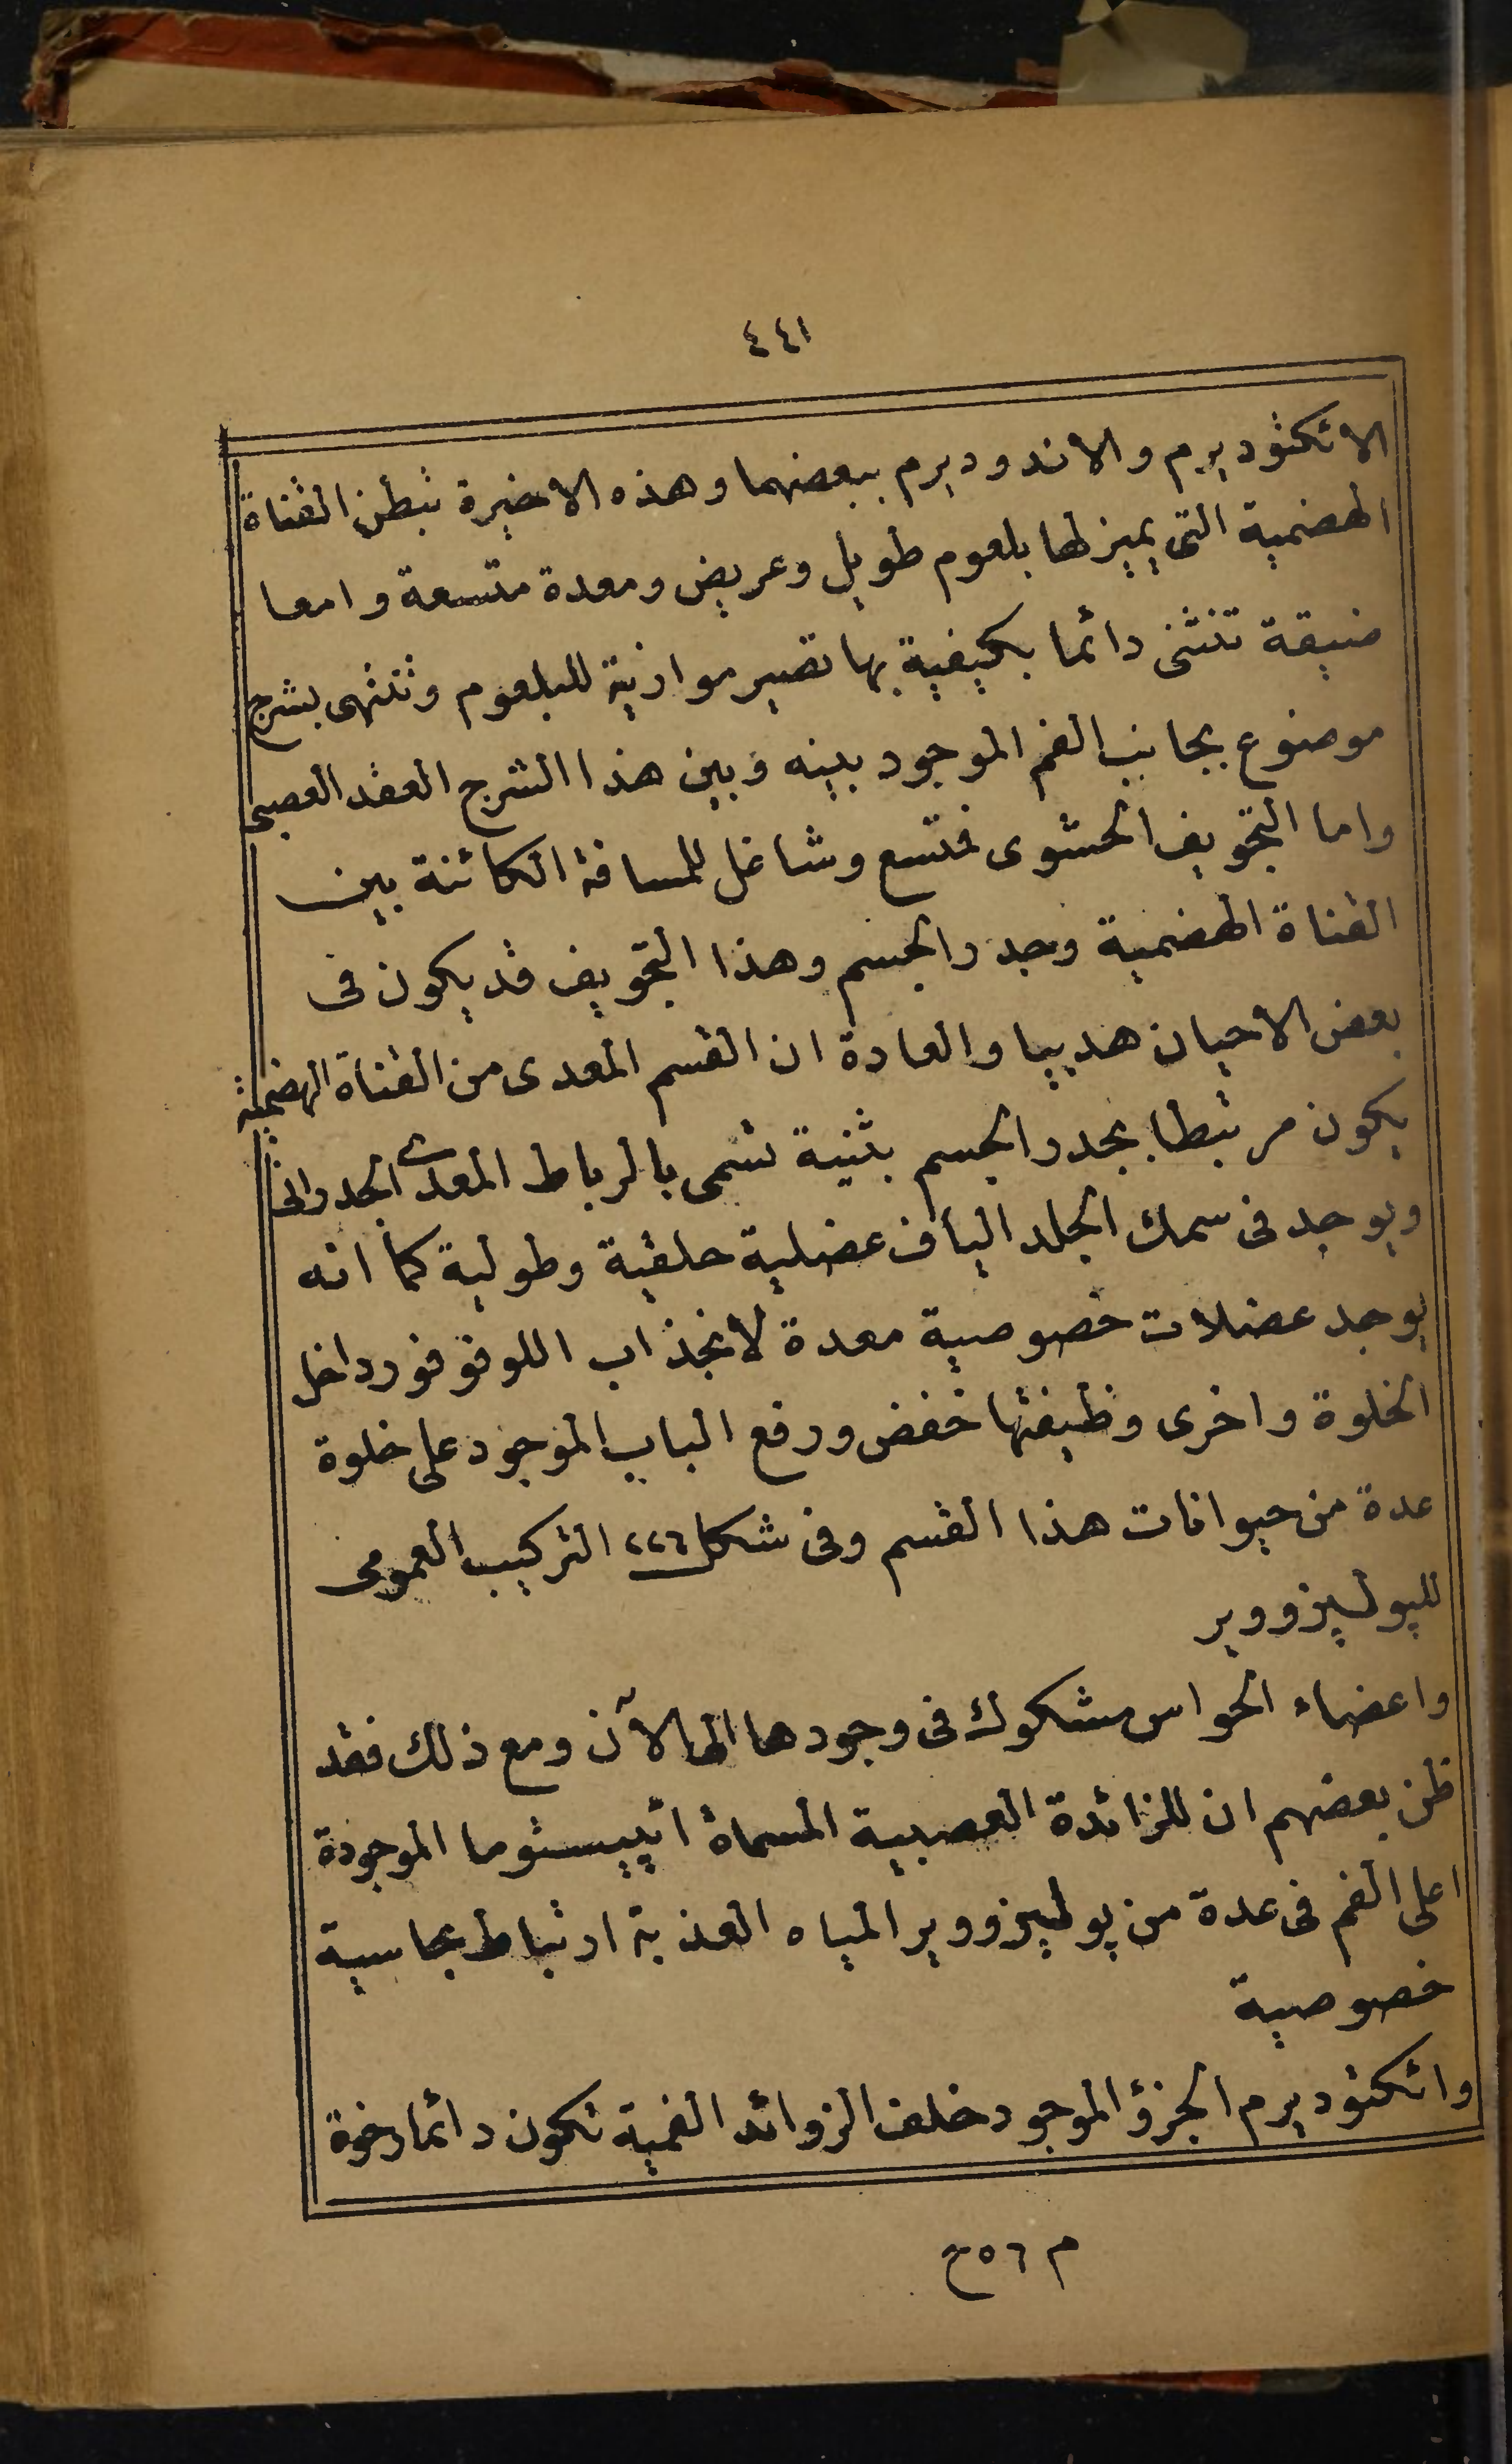 ٤٤١
الاتكتوديرم والاندوديرم ببعضهما وهذه الاخيرة تبطن القناة
الهضمية التى يميز لها بلعوم طويل وعريض ومعدة متسعة وامعا
ضيقة تنثنى دائما بكيفية بها تصير موازية للبلعوم وتنتهى بشرج
موضوع بجانب الفم الموجود بينه وبين هذا الشرج العقد العصبى
واما التجويف الحشوى فمتسع وشاغل للمسافة الكائنة بين
القناة الهضمية وجدر الجسم وهذا التجويف قد يكون فى
بعض الاحيان هدبيا والعادة ان القسم المعدى من القناة الهضمية
يكون مرتبطا بجدر الجسم بثنية تسمى بالرباط المعدى الجدرانى
ويوجد فى سمك الجلد الياف عضلية حلقية وطولية كما انه
يوجد عضلات خصوصية معدة لانجذاب اللوفوفور داخل
الخلوة واخرى وظيفتها خفض ورفع الباب الموجود على خلوة
عدة من حيوانات هذا القسم وفى شكل ٢٢٦ التركيب العمومى
للپوليزووير
واعضاء الحواس مشكوك فى وجودها الى الآن ومع ذلك فقد
ظن بعضهم ان للزائدة العصبية المسماة اپيستوما الموجودة
اعلى الفم فى عدة من پوليزووير المياه العذبة ارتباط بحاسية
خصوصية
واتكتوديرم الجزؤ الموجود خلف الزوائد الفمية تكون دائما رخوة
م ٥٦ ح